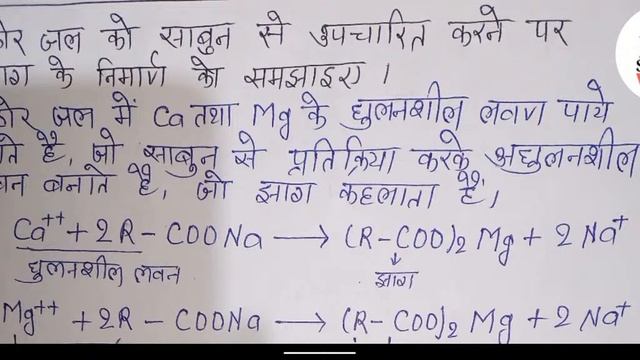 ोर जल को साबुन से उपचारित करने पर
ाग के निर्माण को समझाइए।
ोर जल में Ca तथा Mg के घुलनशील लवण पाये
ते है, जो साबुन से प्रतिक्रिया करके अघुलनशील
वन बनाते है, जो झाग कहलाता है।
Ca⁺⁺ + 2R – COONa → (R–COO)₂ Mg + 2 Na⁺
घुलनशील लवन झाग
Mg⁺⁺ + 2R – COONa → (R–COO)₂ Mg + 2 Na⁺